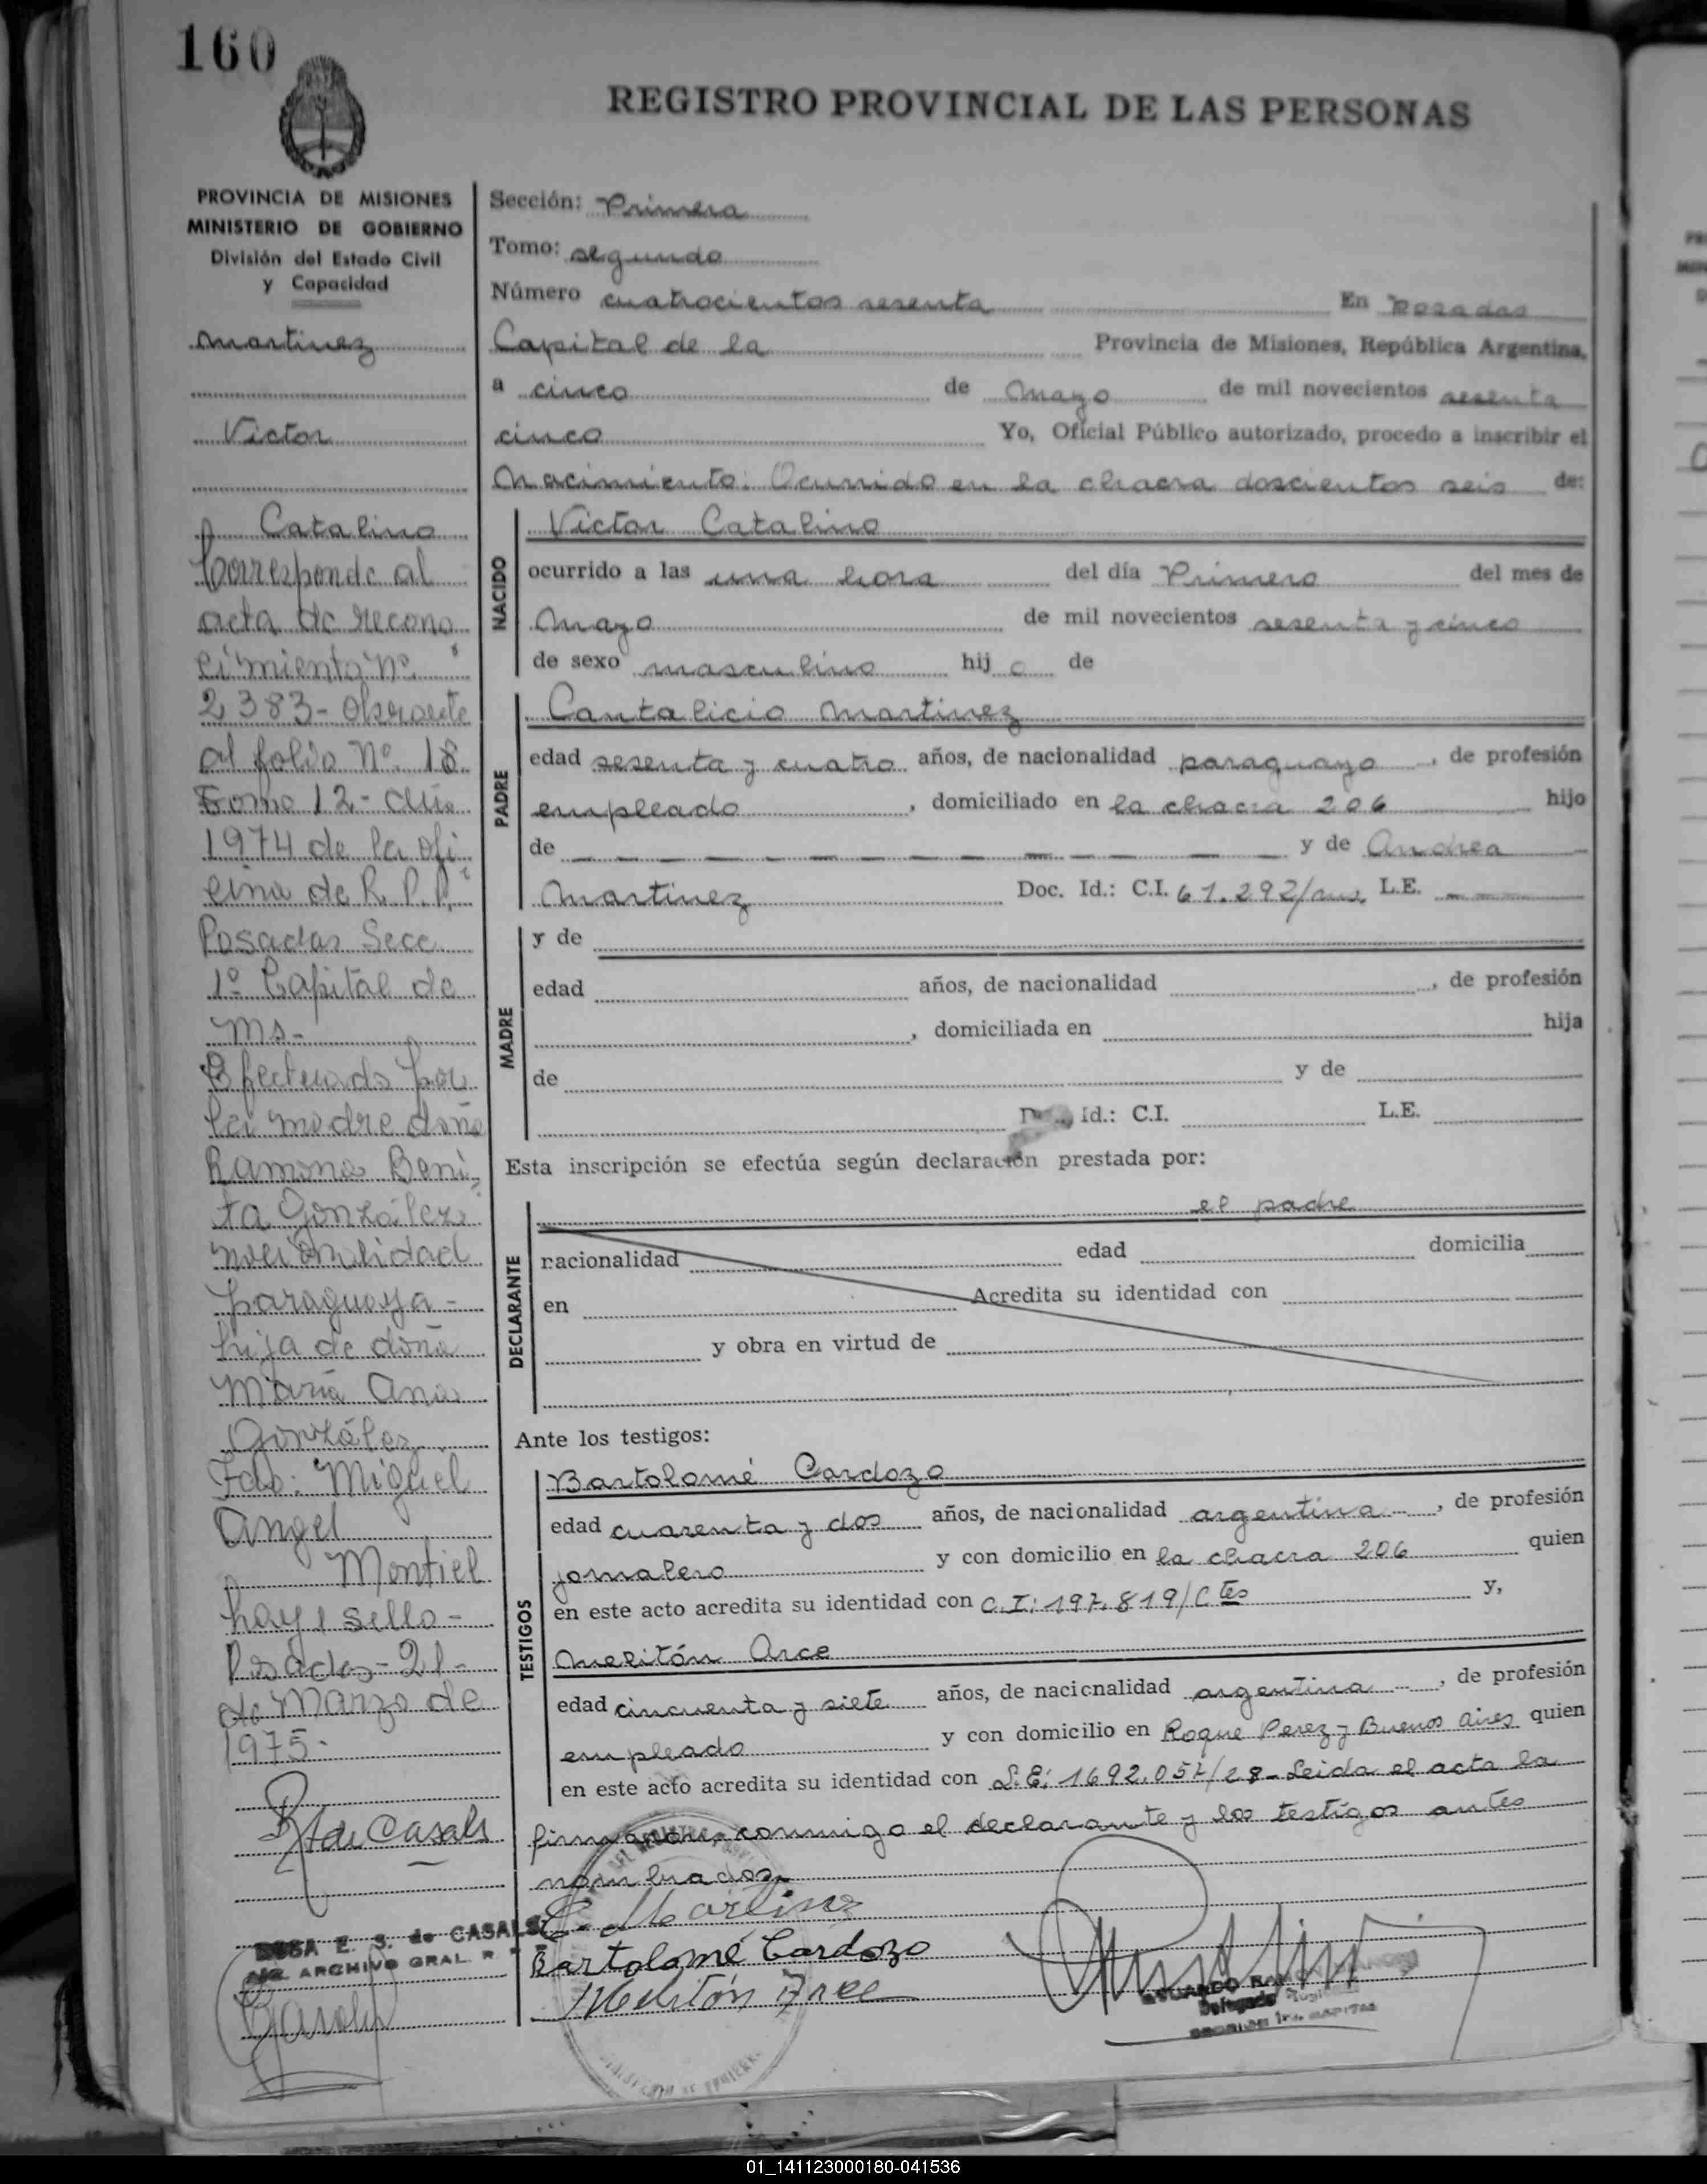 160
REGISTRO PROVINCIAL DE LAS PERSONAS
PROVINCIA DE MISIONES
MINISTERIO DE GOBIERNO
División del Estado Civil
y Capacidad
Martinez
Victor
Catalino
Corresponde al
acta de recono
cimiento Nº
2383- Obrante
al folio Nº 18
Tomo 12- Año
1974 de la ofi
cina de R. P. P.
Posadas Secc
1º Capital de
Ms-
Efectuado por
la madre doña
Ramona Beni
ta González
nacionalidad
paraguaya-
hija de doña
María Ana
González
Fdo: Miguel
Angel
Montiel
hay 1 sello-
Posadas- 21-
de Marzo de
1975-
de Casals
E. S. de CASALS
ARCHIVO GRAL. R. P.
Sección: Primera
Tomo: segundo
Número cuatrocientos sesenta En Posadas
Capital de la Provincia de Misiones, República Argentina,
a cinco de Mayo de mil novecientos sesenta
cinco Yo, Oficial Público autorizado, procedo a inscribir el
Nacimiento: Ocurrido en la chacra doscientos seis de:
NACIDO
Victor Catalino
ocurrido a las una hora del día Primero del mes de
Mayo de mil novecientos sesenta y cinco
de sexo masculino hijo de
PADRE
Cantalicio Martinez
edad sesenta y cuatro años, de nacionalidad paraguayo, de profesión
empleado, domiciliado en la chacra 206 hijo
de — — — — — — — — — — y de Andrea
Martinez Doc. Id.: C.I. 61.292/ L.E. ——
MADRE
y de
edad años, de nacionalidad , de profesión
, domiciliada en hija
de y de
Id.: C.I. L.E.
Esta inscripción se efectúa según declaración prestada por:
DECLARANTE
el padre
nacionalidad edad domicilia
en Acredita su identidad con
y obra en virtud de
Ante los testigos:
TESTIGOS
Bartolomé Cardozo
edad cuarenta y dos años, de nacionalidad argentina, de profesión
jornalero y con domicilio en la chacra 206 quien
en este acto acredita su identidad con C.I: 197.819/Ctes y,
Melitón Arce
edad cincuenta y siete años, de nacionalidad argentina, de profesión
empleado y con domicilio en Roque Perez y Buenos Aires quien
en este acto acredita su identidad con L.E: 1692.057/28- Leida el acta la
firmandola conmigo el declarante y los testigos antes
nombrados.
C. Martinez
Bartolomé Cardozo
Melitón Arce
Delegado
01_141123000180-041536